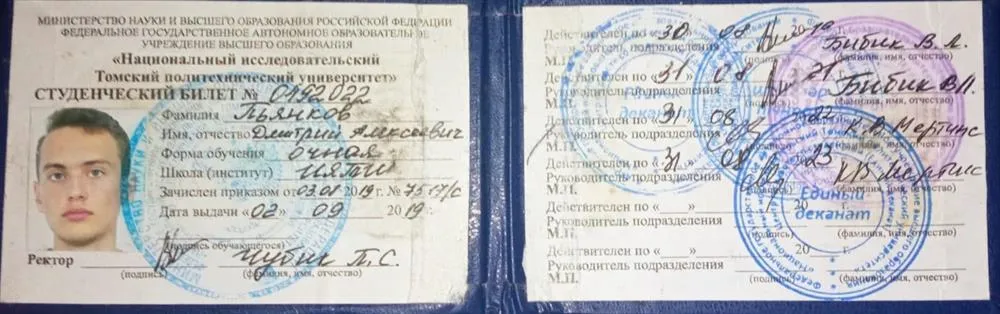 МИНИСТЕРСТВО НАУКИ И ВЫСШЕГО ОБРАЗОВАНИЯ РОССИЙСКОЙ ФЕДЕРАЦИИ
ФЕДЕРАЛЬНОЕ ГОСУДАРСТВЕННОЕ АВТОНОМНОЕ ОБРАЗОВАТЕЛЬНОЕ
УЧРЕЖДЕНИЕ ВЫСШЕГО ОБРАЗОВАНИЯ
«Национальный исследовательский
Томский политехнический университет»
СТУДЕНЧЕСКИЙ БИЛЕТ № 0192022
Фамилия Пьянков
Имя, отчество Дмитрий Алексеевич
Форма обучения очная
Школа (институт) ИЯТШ
Зачислен приказом от 03.01 2019 г. №
Дата выдачи «02» 09 2019 г.
(подпись обучающегося)
Ректор Чубик П.С.
(подпись) (фамилия, имя, отчество)
Действителен по «30» 08
Руководитель подразделения Бибик В.Л.
М.П. (подпись) (фамилия, имя, отчество)
Действителен по «31» 08 21
Руководитель подразделения Бибик В.Л.
М.П. (подпись) (фамилия, имя, отчество)
Действителен по «31» 08
Руководитель подразделения К.В. Мертинс
М.П. (подпись) (фамилия, имя, отчество)
Действителен по «31» 08 23
Руководитель подразделения КВ Мертинс
М.П. (подпись) (фамилия, имя, отчество)
Действителен по « » 20 г.
Руководитель подразделения
М.П. (подпись) (фамилия, имя, отчество)
Действителен по « » 20 г.
Руководитель подразделения
М.П. (подпись) (фамилия, имя, отчество)
Единый
деканат